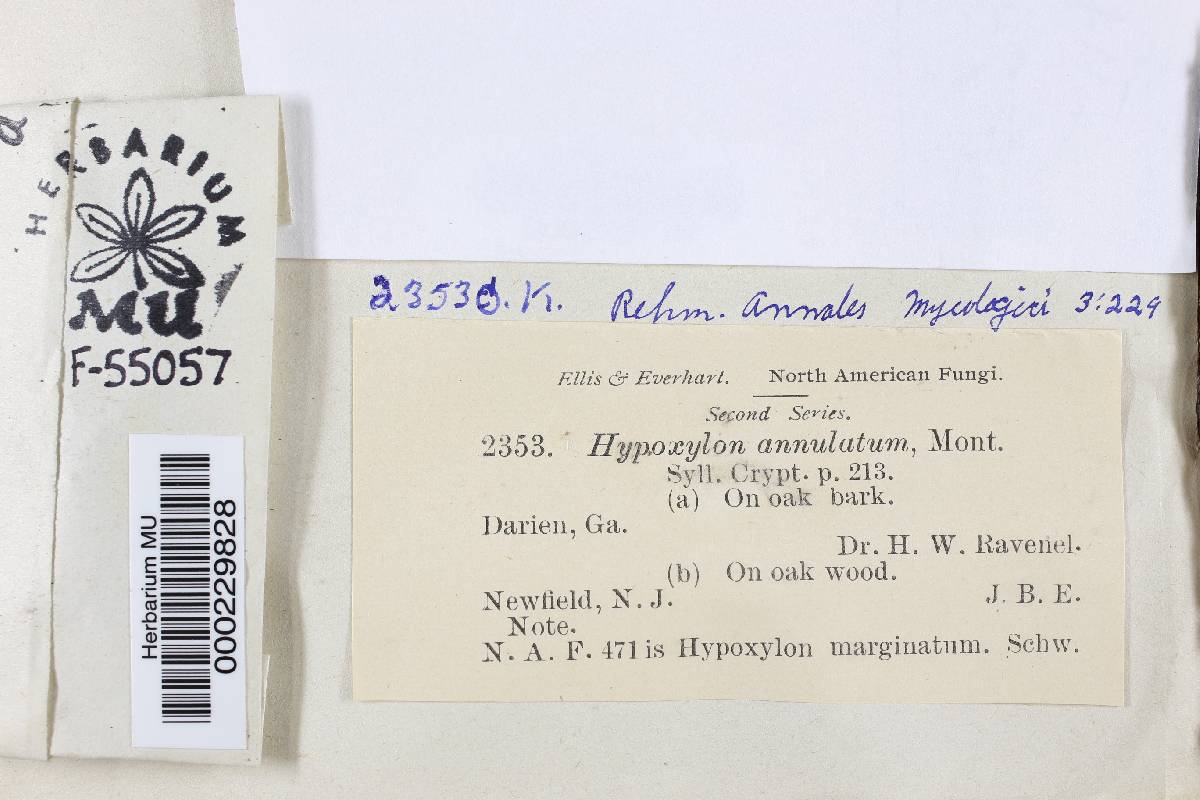 a
HERBARIUM
MU
F-55057
Herbarium MU
000229828
2353 O.K. Rehm. Annales Mycologici 3:229
Ellis & Everhart. North American Fungi.
Second Series.
2353. Hypoxylon annulatum, Mont.
Syll. Crypt. p. 213.
(a) On oak bark.
Darien, Ga.
Dr. H. W. Ravenel.
(b) On oak wood.
Newfield, N. J. J. B. E.
Note.
N. A. F. 471 is Hypoxylon marginatum. Schw.